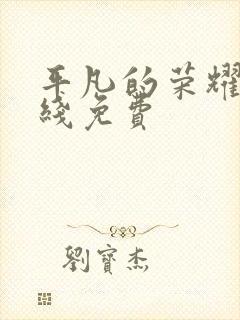 平凡的荣耀
线免费
劉寶杰